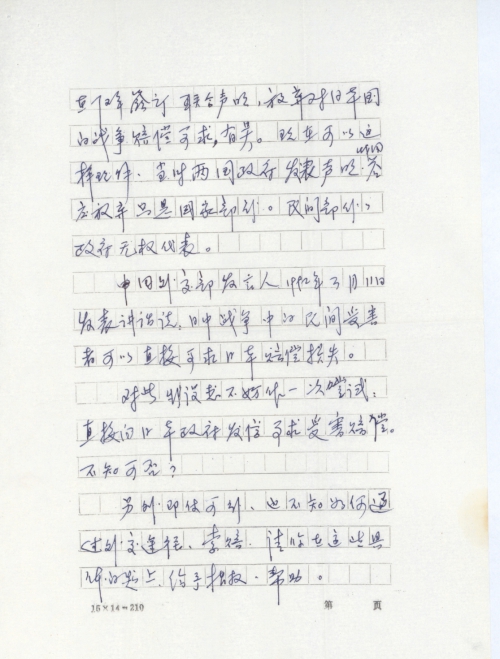 在72年签订联合声明，放弃对日本国
的战争赔偿要求，有关。现在可以这
样理解，当时两国政府发表声明，答
中国
应放弃只是国家部份。民间部份，
政府无权代表。
中国外交部发言人1992年3月11日
发表讲话说，日中战争中的民间受害
者可以直接要求日本赔偿损失。
对此我设想不妨作一次尝试，
直接向日本政府发信要求受害赔偿。
不知可否？
另外，即使可行，也不知如何通
过外交途径，索赔，请你在这些具
体问题上，给予指教，帮助。
15×14=210
第 页